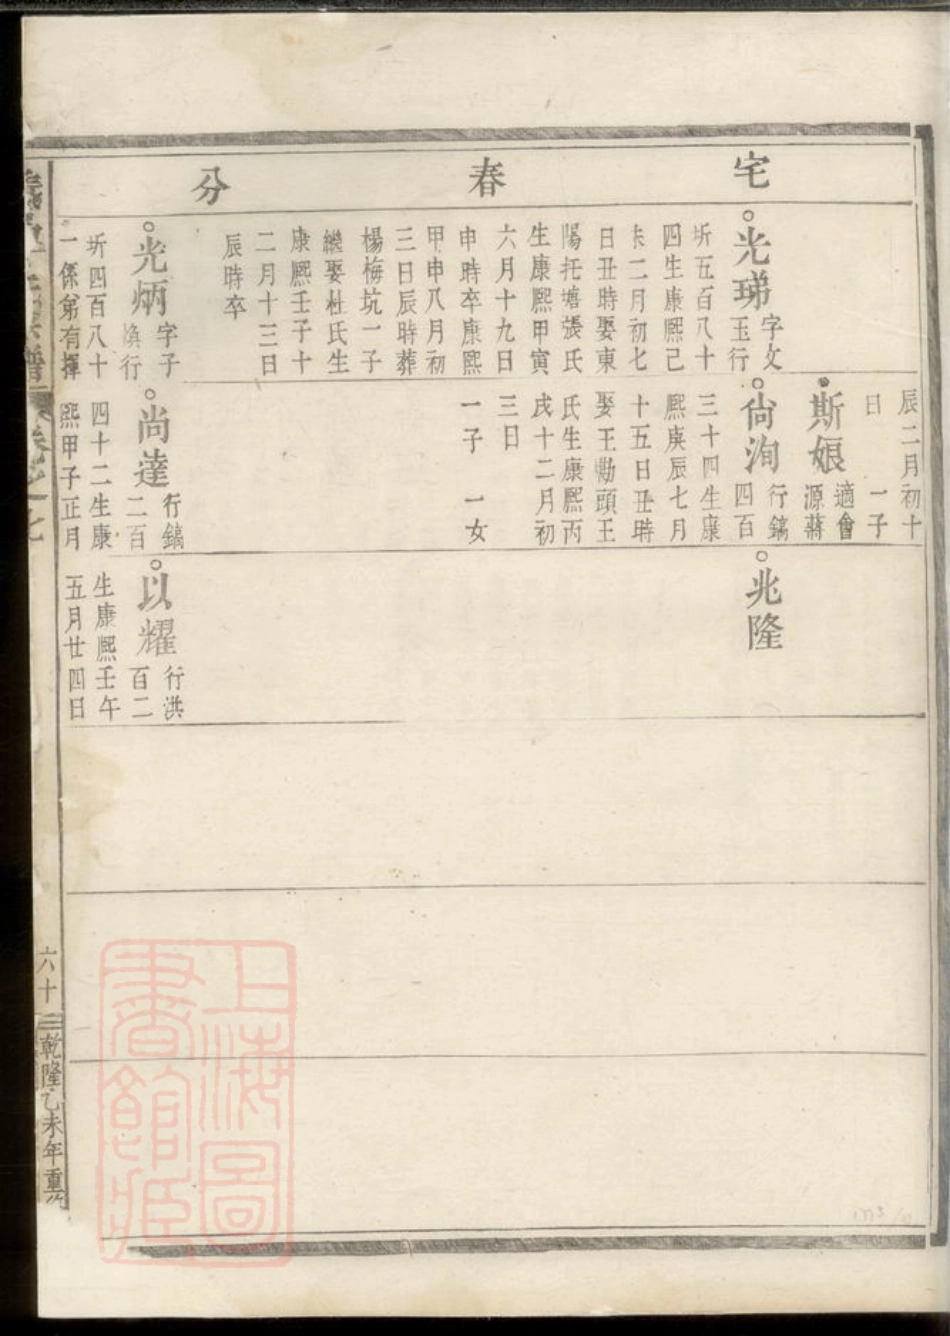 宅
春
分
光瑅
字文
玉行
圻五百八十
四生康熙己
未二月初七
日丑時娶東
陽托塘張氏
生康熙甲寅
六月十九日
申時卒康熙
甲申八月初
三日辰時葬
楊梅坑一子
繼娶杜氏生
康熙壬子十
二月十三日
辰時卒
光炳
字子
煥行
圻四百八十
一係弟有揮
辰二月初十
日 一子
斯娘
適會
源蔣
尙洵
行鎬
四百
三十四生康
熙庚辰七月
十五日丑時
娶王勘頭王
氏生康熙丙
戌十二月初
三日
一子 一女
尚達
行鎬
二百
四十二生康
熙甲子正月
兆隆
以耀
行洪
百二
生康熙壬午
五月廿四日
卷之七
六十三
乾隆乙未年重
上海圖
書館藏